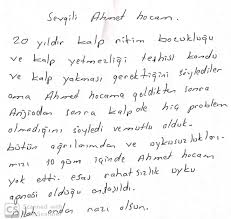 Sevgili Ahmet hocam.
20 yıldır kalp ritim bozukluğu
ve kalp yetmezliği teşhisi kondu
ve kalp yakması gerektiğini söylediler
ama Ahmet hocama geldikten sonra
Anjiodan sonra kalpde hiç problem
olmadığını söyledi ve mutlu olduk.
bütün ağrılarımdan ve uykusuzlukları-
mızı 10 gün içinde Ahmet hocam
yok etti. esas rahatsızlık uyku
apnesi olduğu anlaşıldı.
Allah ondan razı olsun.
CS Scanned with